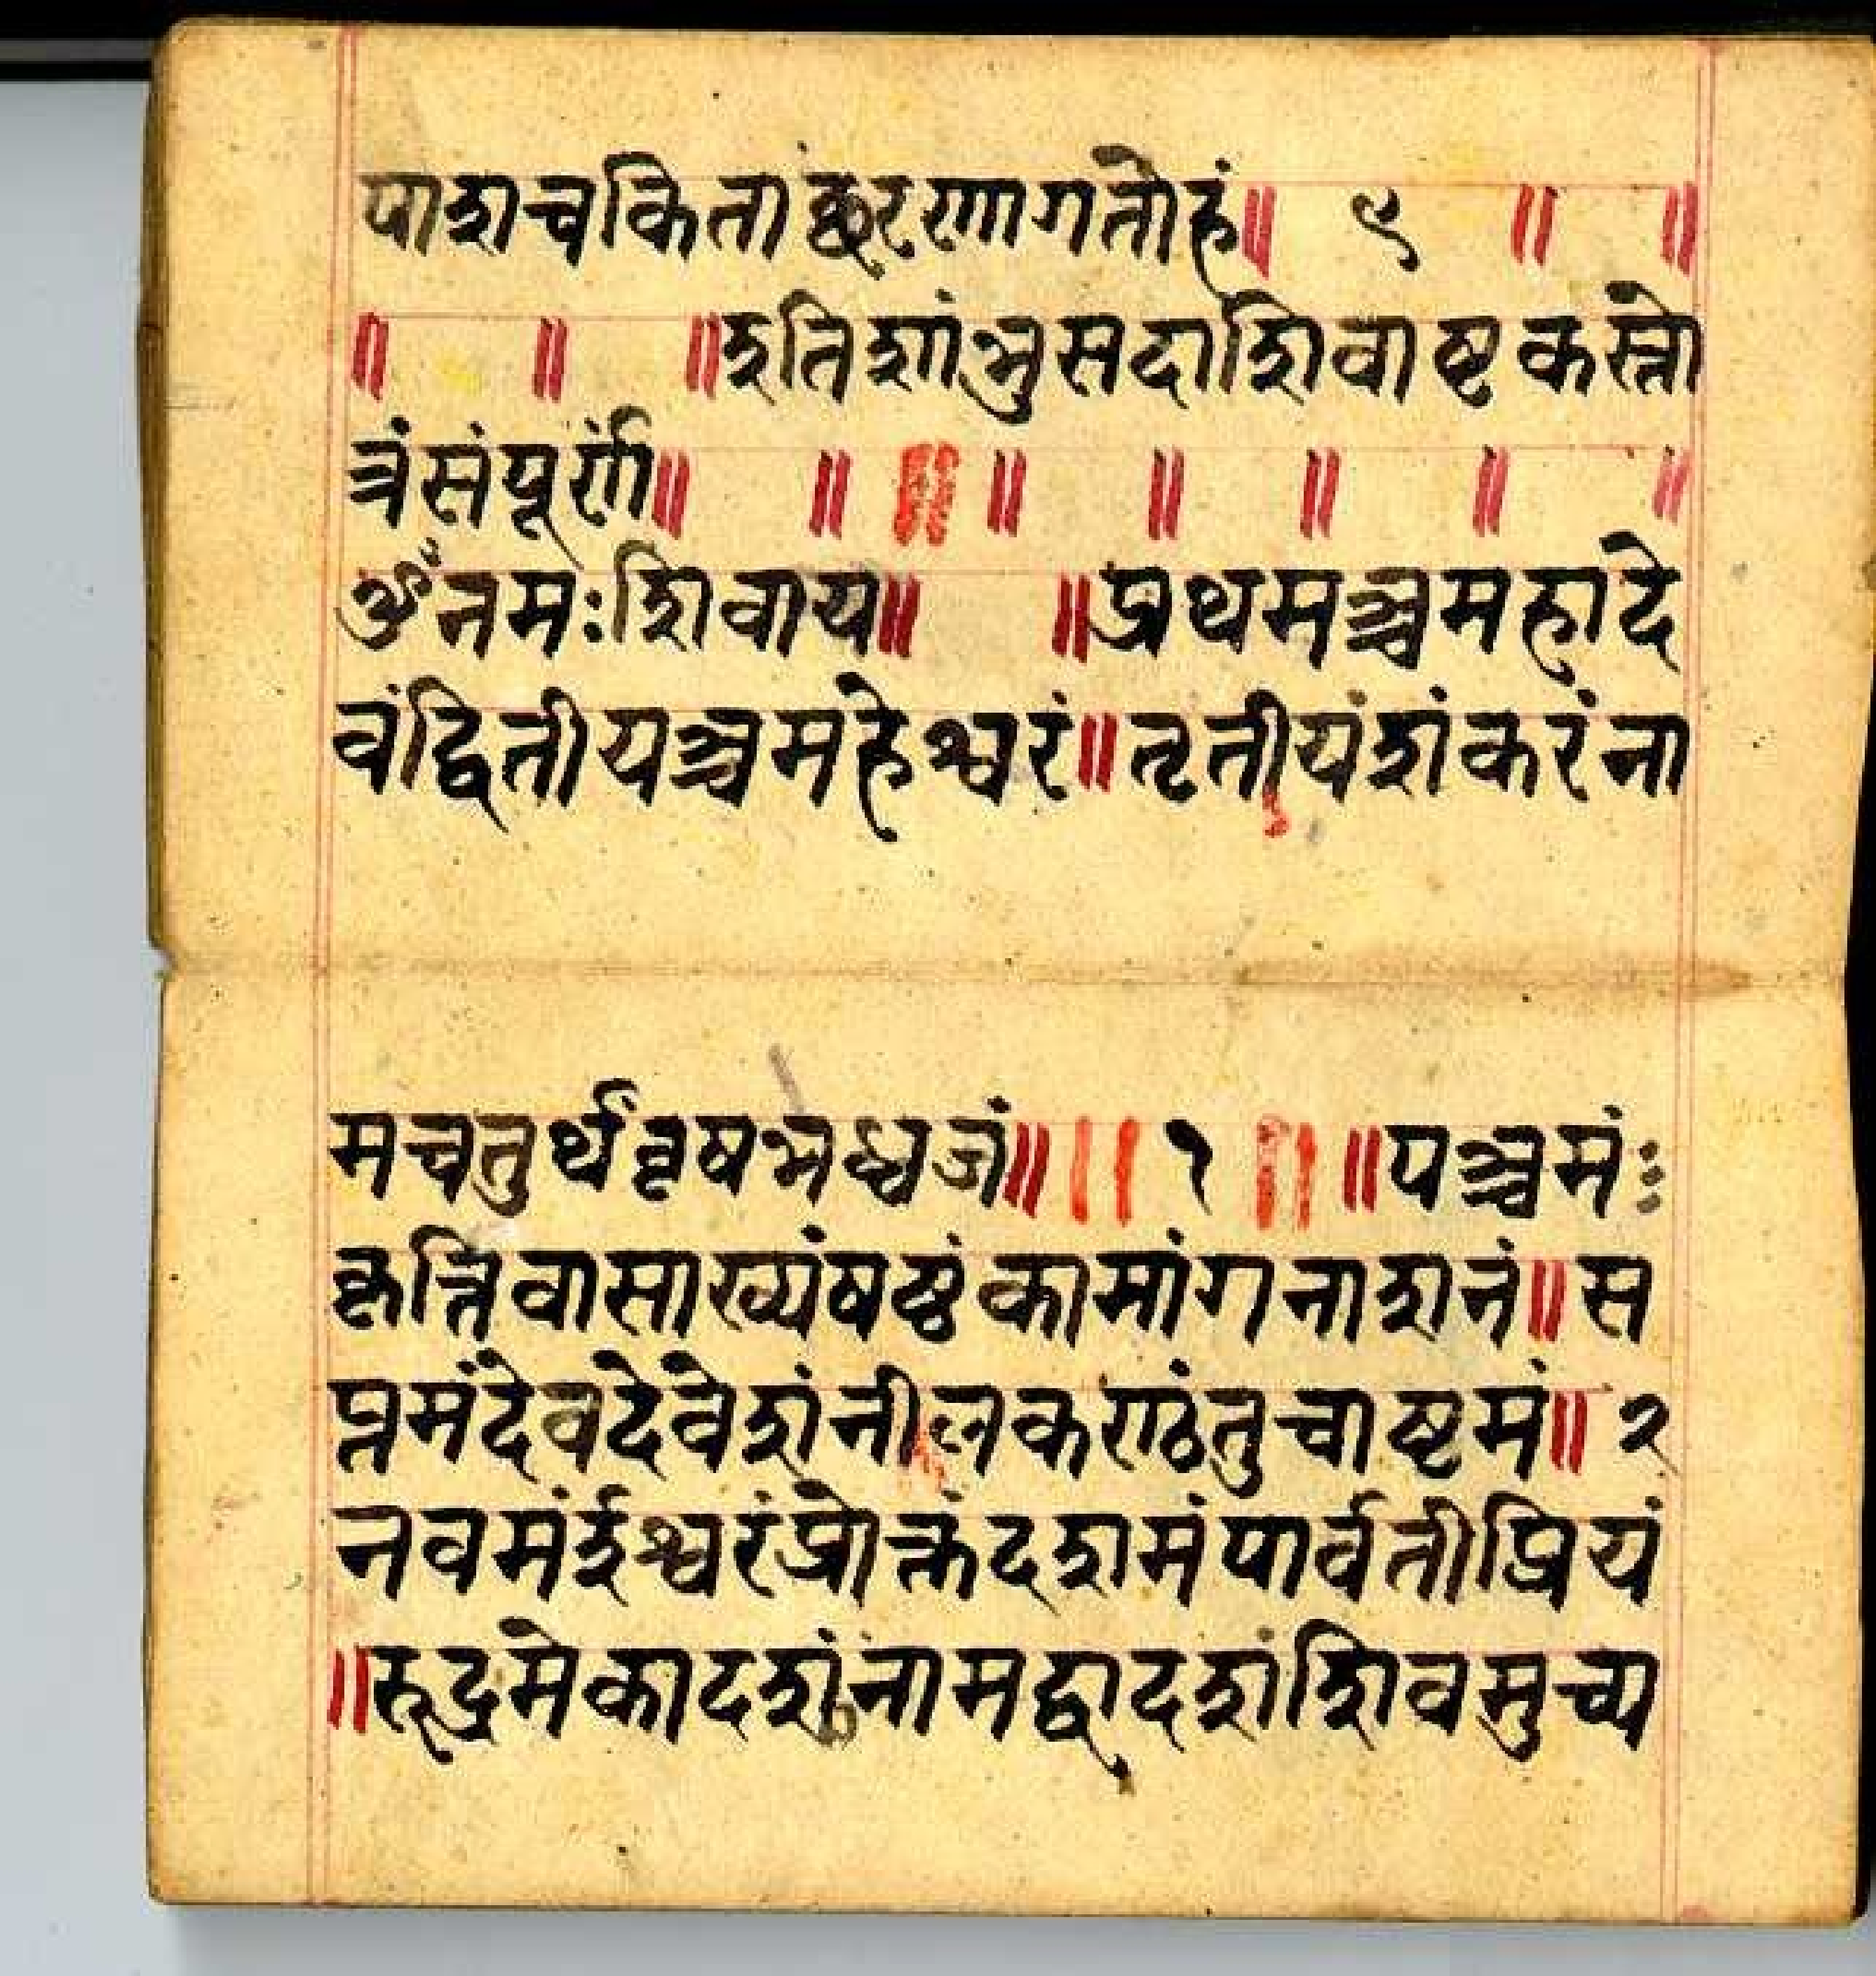 पाशचकिताछरणागतोहं॥ ९ ॥ ॥
॥ ॥ ॥इतिशंभुसदाशिवाष्टकस्तो
त्रंसंपूर्णं॥ ॥ ॥ ॥ ॥ ॥ ॥ ॥
ॐनमःशिवाय॥ ॥प्रथमञ्चमहादे
वंद्वितीयञ्चमहेश्वरं॥तृतीयंशंकरंना
मचतुर्थंवृषभध्वजं॥॥ १ ॥ ॥पञ्चमंः
कृत्तिवासाख्यंषष्ठंकामांगनाशनं॥स
प्तमंदेवदेवेशंनीलकण्ठंतुचाष्टमं॥ २
नवमंईश्वरंप्रोक्तंदशमंपार्वतीप्रियं
॥रुद्रमेकादशंनामद्वादशंशिवमुच्य